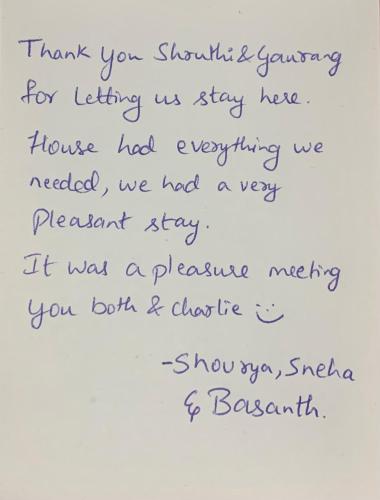 Thank you Shruthi & Gaurang
for letting us stay here.
House had everything we
needed, we had a very
Pleasant stay.
It was a pleasure meeting
you both & charlie :)
-Shourya, Sneha
& Basanth.